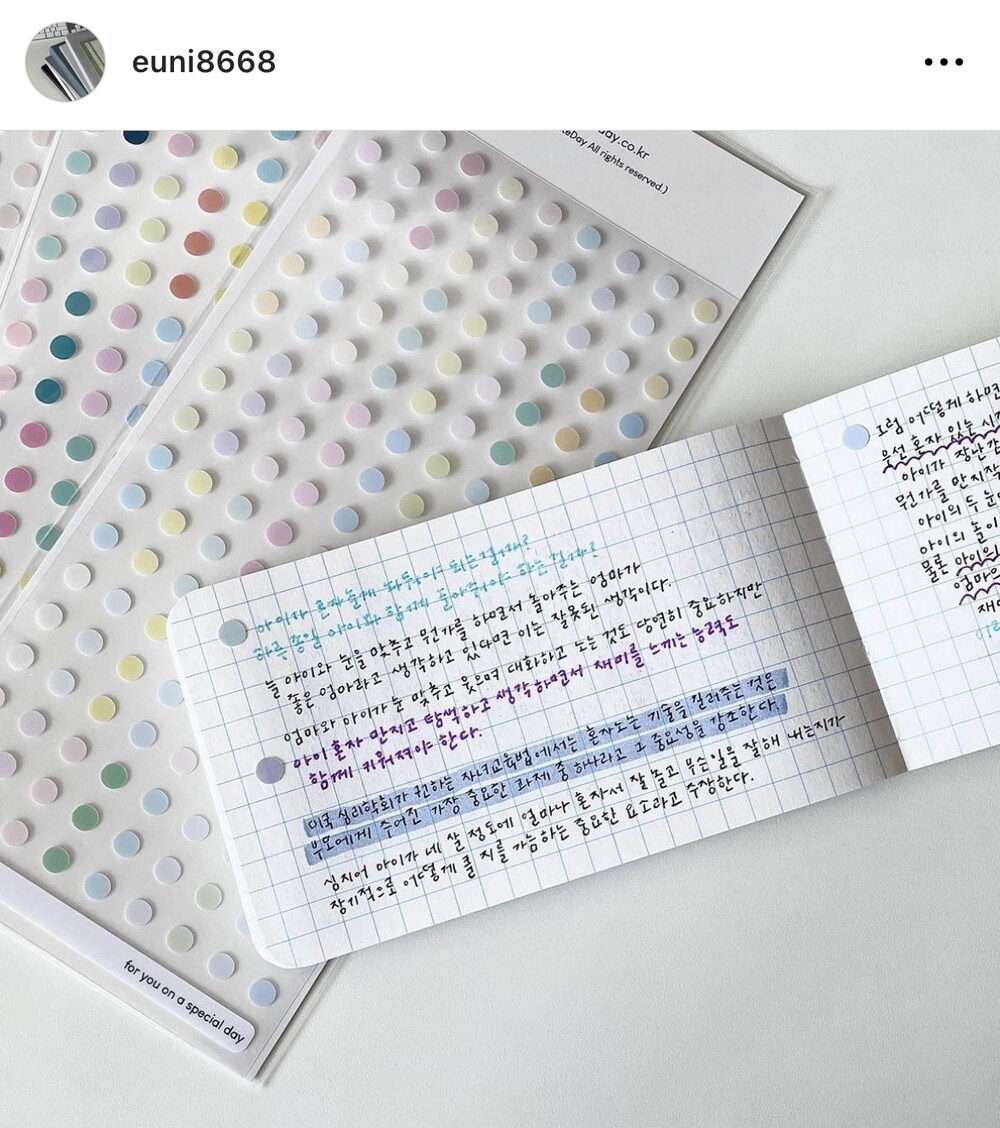 euni8668
day.co.kr
eDay All rights reserved.)
아이가 혼자 놀게 놔둬야 되는걸까?
하루 종일 아이와 함께 놀아줘야 하는 걸까?
늘 아이와 눈을 맞추고 뭔가를 하면서 놀아주는 엄마가
좋은 엄마라고 생각하고 있다면 이는 잘못된 생각이다.
엄마와 아이가 눈 맞추고 웃으며 대화하고 노는 것도 당연히 중요하지만
아이 혼자 만지고 탐색하고 생각하면서 재미를 느끼는 능력도
함께 키워져야 한다.
미국 심리학회가 권하는 자녀교육법에서는 혼자 노는 기술을 길러주는 것은
부모에게 주어진 가장 중요한 과제 중 하나라고 그 중요성을 강조한다.
심지어 아이가 네 살 정도에 얼마나 혼자서 잘 놀고 무슨 일을 잘해 내는지가
장기적으로 어떻게 클 지를 가늠하는 중요한 요소라고 주장한다.
그럼 어떻게 하면
우선 혼자 있는 시
아이가 장난감
뭔가를 만지작
아이의 두 눈
아이의 놀이
물론 아이의
엄마은
재미
for you on a special day